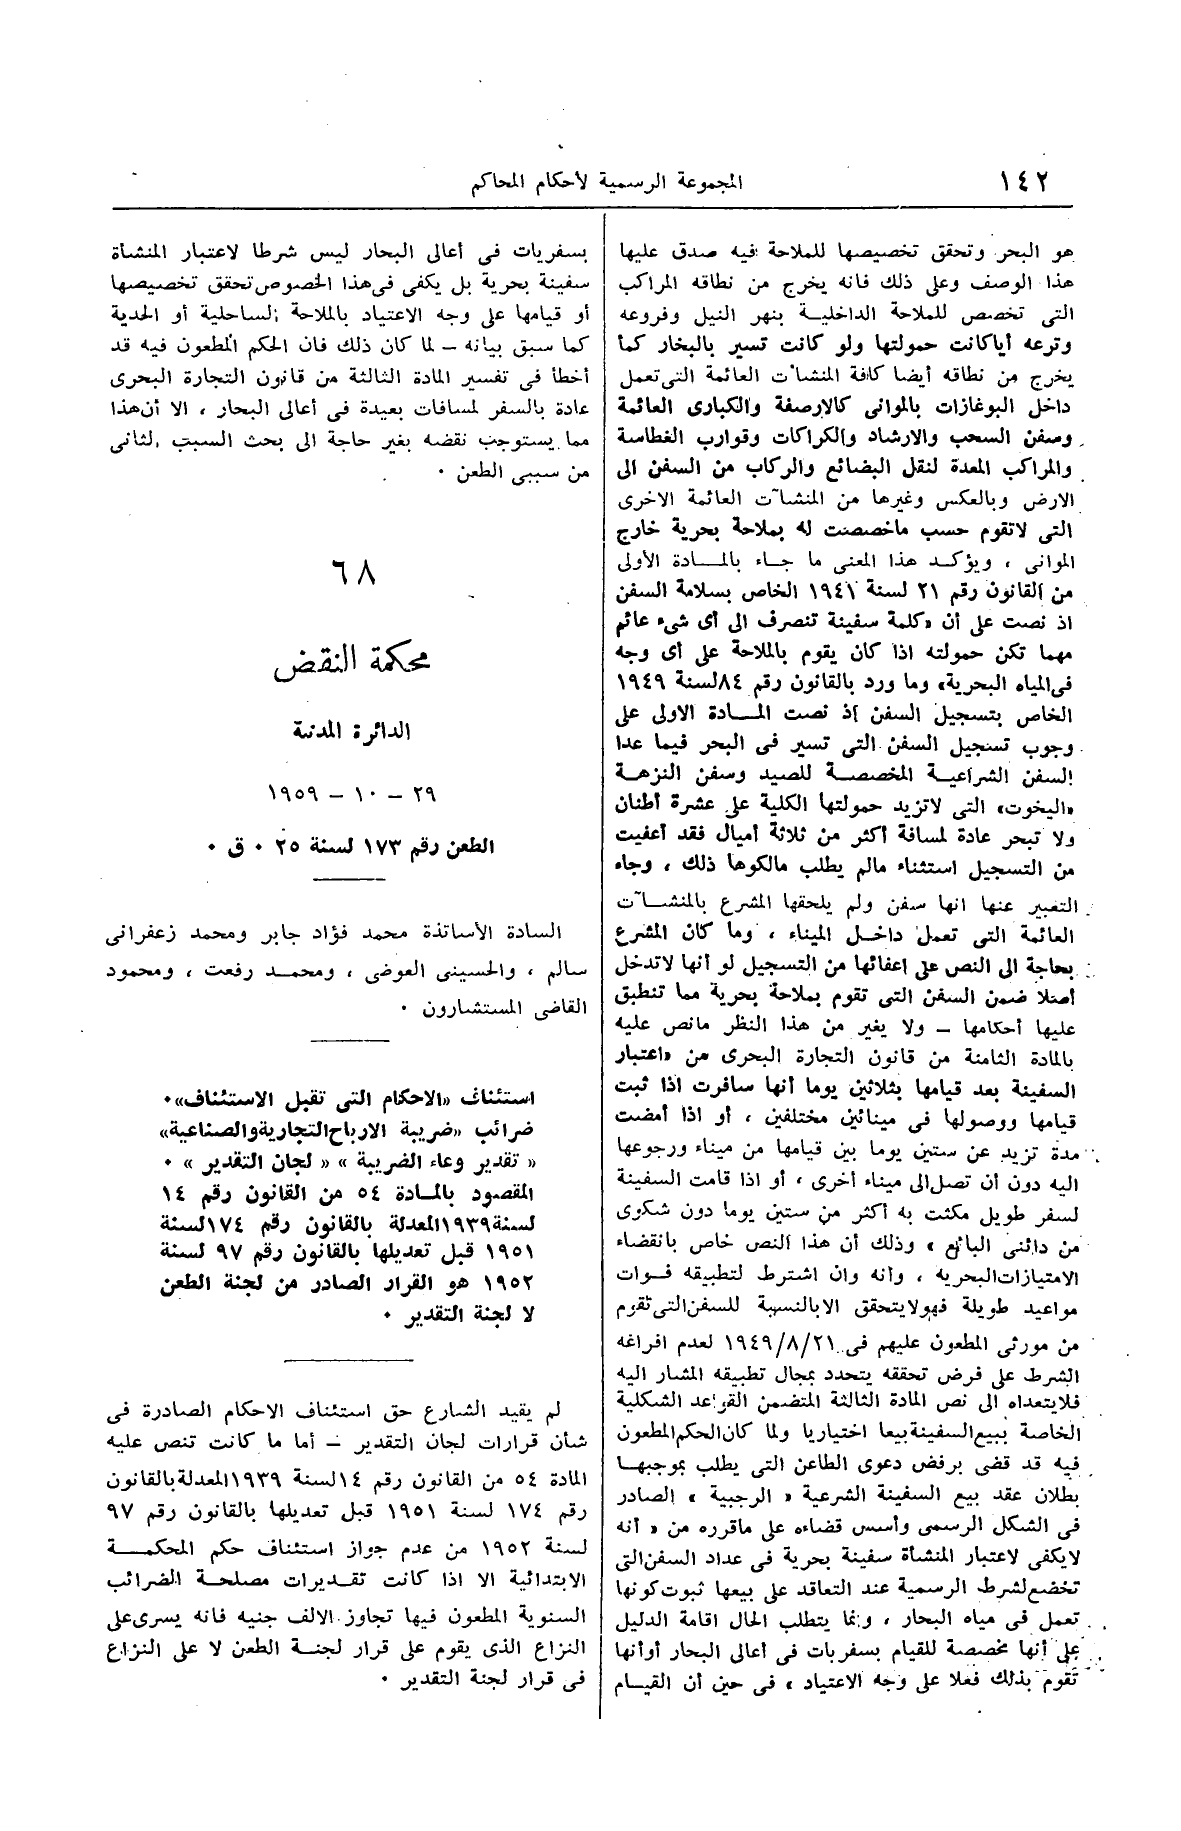 ١٤٢
المجموعة الرسمية لأحكام المحاكم
هو البحر وتحقق تخصيصها للملاحة فيه صدق عليها
هذا الوصف وعلى ذلك فانه يخرج من نطاقه المراكب
التى تخصص للملاحة الداخلية بنهر النيل وفروعه
وترعه أياكانت حمولتها ولو كانت تسير بالبخار كما
يخرج من نطاقه أيضا كافة المنشآت العائمة التى تعمل
داخل البوغازات بالموانى كالارصفة والكبارى العائمة
وسفن السحب والارشاد والكراكات وقوارب الغطاسة
والمراكب المعدة لنقل البضائع والركاب من السفن الى
الارض وبالعكس وغيرها من المنشآت العائمة الاخرى
التى لاتقوم حسب ماخصصت له بملاحة بحرية خارج
الموانى ، ويؤكد هذا المعنى ما جاء بالمادة الأولى
من القانون رقم ٢١ لسنة ١٩٤١ الخاص بسلامة السفن
اذ نصت على أن «كلمة سفينة تنصرف الى أى شىء عائم
مهما تكن حمولته اذا كان يقوم بالملاحة على أى وجه
فى المياه البحرية» وما ورد بالقانون رقم ٨٤ لسنة ١٩٤٩
الخاص بتسجيل السفن إذ نصت المادة الاولى على
وجوب تسجيل السفن التى تسير فى البحر فيما عدا
السفن الشراعية المخصصة للصيد وسفن النزهة
«اليخوت» التى لاتزيد حمولتها الكلية على عشرة أطنان
ولا تبحر عادة لمسافة أكثر من ثلاثة أميال فقد أعفيت
من التسجيل استثناء مالم يطلب مالكوها ذلك ، وجاء
التعبير عنها انها سفن ولم يلحقها المشرع بالمنشآت
العائمة التى تعمل داخل الميناء ، وما كان المشرع
بحاجة الى النص على اعفائها من التسجيل لو أنها لاتدخل
أصلا ضمن السفن التى تقوم بملاحة بحرية مما تنطبق
عليها أحكامها – ولا يغير من هذا النظر مانص عليه
بالمادة الثامنة من قانون التجارة البحرى من «اعتبار
السفينة بعد قيامها بثلاثين يوما أنها سافرت اذا ثبت
قيامها ووصولها فى مينائين مختلفين ، أو اذا أمضت
مدة تزيد عن ستين يوما بين قيامها من ميناء ورجوعها
اليه دون أن تصل الى ميناء أخرى ، أو اذا قامت السفينة
لسفر طويل مكثت به أكثر من ستين يوما دون شكوى
من دائنى البائع » وذلك أن هذا النص خاص بانقضاء
الامتيازات البحرية ، وأنه وان اشترط لتطبيقه فوات
مواعيد طويلة فهو لايتحقق الا بالنسبة للسفن التى تقوم
من مورثى المطعون عليهم فى ١٩٤٩/٨/٢١ لعدم افراغه
الشرط على فرض تحققه يتحدد بمجال تطبيقه المشار اليه
فلايتعداه الى نص المادة الثالثة المتضمن القواعد الشكلية
الخاصة ببيع السفينة بيعا اختياريا ولما كان الحكم المطعون
فيه قد قضى برفض دعوى الطاعن التى يطلب بموجبها
بطلان عقد بيع السفينة الشرعية « الرجبية » الصادر
فى الشكل الرسمى وأسس قضاءه على ماقرره من « أنه
لايكفى لاعتبار المنشأة سفينة بحرية فى عداد السفن التى
تخضع لشرط الرسمية عند التعاقد على بيعها ثبوت كونها
تعمل فى مياه البحار ، وإنما يتطلب الحال اقامة الدليل
على أنها مخصصة للقيام بسفريات فى أعالى البحار أو أنها
تقوم بذلك فعلا على وجه الاعتياد ، فى حين أن القيام
بسفريات فى أعالى البحار ليس شرطا لاعتبار المنشأة
سفينة بحرية بل يكفى فى هذا الخصوص تحقق تخصيصها
أو قيامها على وجه الاعتياد بالملاحة الساحلية أو الحدية
كما سبق بيانه – لما كان ذلك فان الحكم المطعون فيه قد
أخطأ فى تفسير المادة الثالثة من قانون التجارة البحرى
عادة بالسفر لمسافات بعيدة فى أعالى البحار ، الا أن هذا
مما يستوجب نقضه بغير حاجة الى بحث السبب الثانى
من سببى الطعن ٠
٦٨
محكمة النقض
الدائرة المدنية
٢٩ – ١٠ – ١٩٥٩
الطعن رقم ١٧٣ لسنة ٢٥ ٠ ق ٠
السادة الأساتذة محمد فؤاد جابر ومحمد زعفرانى
سالم ، والحسينى العوضى ، ومحمد رفعت ، ومحمود
القاضى المستشارون ٠
استئناف «الاحكام التى تقبل الاستئناف»٠
ضرائب «ضريبة الارباح التجارية والصناعية»
« تقدير وعاء الضريبة » « لجان التقدير » ٠
المقصود بالمادة ٥٤ من القانون رقم ١٤
لسنة ١٩٣٩ المعدلة بالقانون رقم ١٧٤ لسنة
١٩٥١ قبل تعديلها بالقانون رقم ٩٧ لسنة
١٩٥٢ هو القرار الصادر من لجنة الطعن
لا لجنة التقدير ٠
لم يقيد الشارع حق استئناف الاحكام الصادرة فى
شأن قرارات لجان التقدير – أما ما كانت تنص عليه
المادة ٥٤ من القانون رقم ١٤ لسنة ١٩٣٩ المعدلة بالقانون
رقم ١٧٤ لسنة ١٩٥١ قبل تعديلها بالقانون رقم ٩٧
لسنة ١٩٥٢ من عدم جواز استئناف حكم المحكمة
الابتدائية الا اذا كانت تقديرات مصلحة الضرائب
السنوية المطعون فيها تجاوز الالف جنيه فانه يسرى على
النزاع الذى يقوم على قرار لجنة الطعن لا على النزاع
فى قرار لجنة التقدير ٠